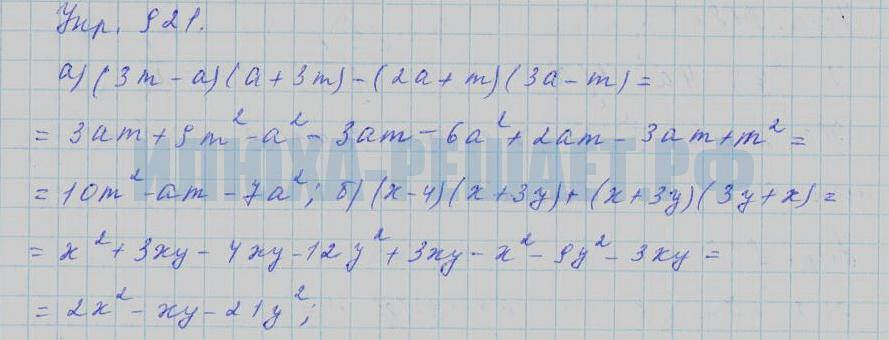 Упр. 921.
а) (3m - a)(a + 3m) - (2a + m)(3a - m) =
= 3am + 9m² - a² - 3am - 6a² + 2am - 3am + m² =
= 10m² - am - 7a²; б) (x - 4)(x + 3y) + (x + 3y)(3y + x) =
= x² + 3xy - 4xy - 12y² + 3xy - x² - 9y² - 3xy =
= 2x² - xy - 21y²;
ИЛЮХА-РЕШАЕТ.РФ